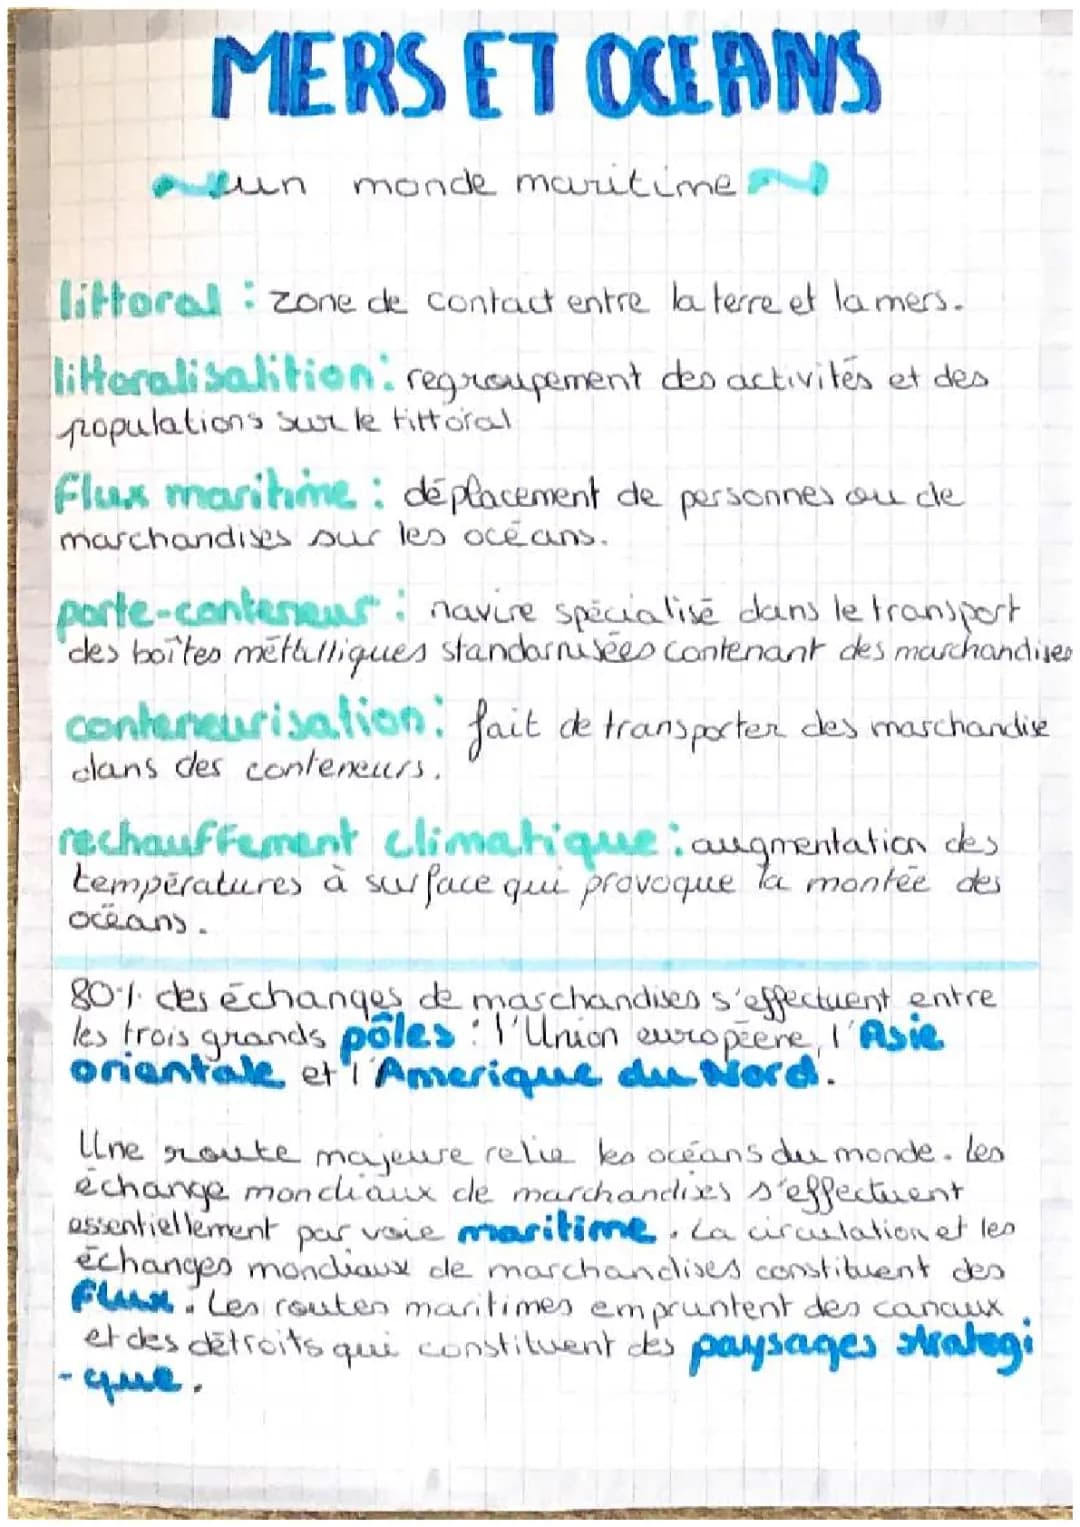 MERS ET OCEANS
un monde maritime
littoral : zone de contact entre la terre et la mers.
littoralisalition : regroupement des activités et des
populations sur le littoral
Flux maritime : déplacement de personnes ou de
marchandises sur les océans.
porte-conteneur : navire spécialisé dans le transport
des boîtes métalliques standarnisées contenant des marchandises
conteneurisation : fait de transporter des marchandise
dans des conteneurs.
rechauffement climatique : augmentation des
températures à surface qui provoque la montée des
océans.
80% des échanges de marchandises s'effectuent entre
les trois grands pôles : l'Union européene, l'Asie
orientale et l'Amerique du Nord.
Une route majeure relie les océans du monde. Les
échange mondiaux de marchandises s'effectuent
essentiellement par voie maritime. La circulation et les
échanges mondiaux de marchandises constituent des
Flux. Les routes maritimes empruntent des canaux
et des détroits qui constituent des paysages strategi
-que.